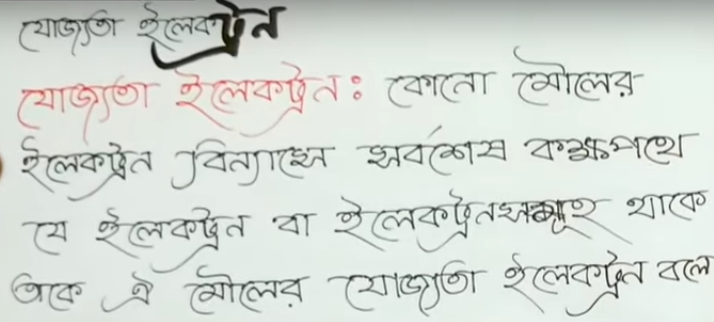 যোজ্যতা ইলেকট্রন
যোজ্যতা ইলেকট্রন: কোনো মৌলের
ইলেকট্রন বিন্যাসে সর্বশেষ কক্ষপথে
যে ইলেকট্রন বা ইলেকট্রনসমূহ থাকে
তাকে ঐ মৌলের যোজ্যতা ইলেকট্রন বলে